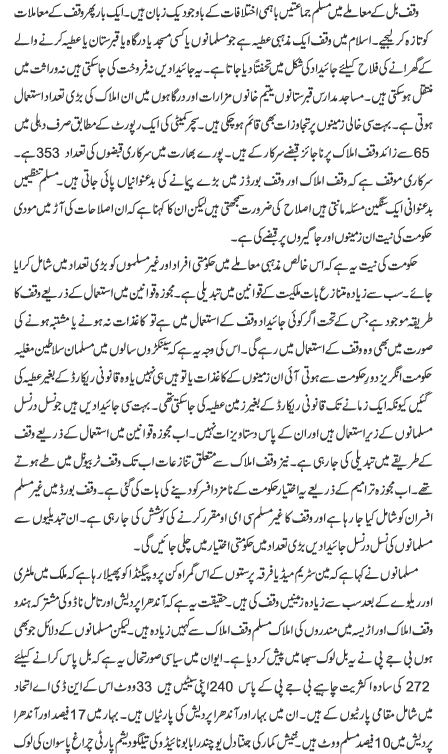 وقف بل کے معاملے میں مسلم جماعتیں باہمی اختلافات کے باوجود یک زبان ہیں۔ ایک بار پھر وقف کے معاملات
کو تازہ کر لیجیے۔ اسلام میں وقف ایک مذہبی عطیہ ہے جو مسلمانوں یا کسی مسجد یا درگاہ یا قبرستان یا عطیہ کرنے والے
کے گھرانے کی فلاح کیلئے جائیداد کی شکل میں تحفتاً دیا جاتا ہے۔ یہ جائیدادیں نہ فروخت کی جاسکتی ہیں نہ وراثت میں
منتقل ہو سکتی ہیں۔ مساجد مدارس قبرستانوں یتیم خانوں مزارات اور درگاہوں میں ان املاک کی بڑی تعداد استعمال
ہوتی ہے۔ بہت سی خالی زمینوں پر تجاوزات بھی قائم ہو چکی ہیں۔ سچر کمیٹی کی ایک رپورٹ کے مطابق صرف دہلی میں
65 سے زائد وقف املاک پر ناجائز قبضے سرکار کے ہیں۔ پورے بھارت میں سرکاری قبضوں کی تعداد 353 ہے۔
سرکاری موقف ہے کہ وقف املاک اور وقف بورڈز میں بڑے پیمانے کی بدعنوانیاں پائی جاتی ہیں۔ مسلم تنظیمیں
بدعنوانی ایک سنگین مسئلہ مانتی ہیں اصلاح کی ضرورت سمجھتی ہیں لیکن ان کا کہنا ہے کہ ان اصلاحات کی آڑ میں مودی
حکومت کی نیت ان زمینوں اور جاگیروں پر قبضے کی ہے۔
حکومت کی نیت یہ ہے کہ اس خالص مذہبی معاملے میں حکومتی افراد اور غیر مسلموں کو بڑی تعداد میں شامل کرایا
جائے۔ سب سے زیادہ متنازع بات ملکیت کے قوانین میں تبدیلی ہے۔ مجوزہ قوانین میں استعمال کے ذریعے وقف کا
طریقہ موجود ہے جس کے تحت اگر کوئی جائیداد وقف کے استعمال میں ہے تو کاغذات نہ ہونے یا مشتبہ ہونے کی
صورت میں بھی وہ وقف کے استعمال میں رہے گی۔ اس کی وجہ یہ ہے کہ سینکڑوں سالوں میں مسلمان سلاطین مغلیہ
حکومت انگریز دور حکومت سے ہوتی آئی ان زمینوں کے کاغذات یا تو ہیں ہی نہیں یا وہ قانونی ریکارڈ کے بغیر عطیہ کی
گئیں کیونکہ ایک زمانے تک قانونی ریکارڈ کے بغیر زمین عطیہ کی جاسکتی تھی۔ بہت سی جائیدادیں ہیں جو نسل در نسل
مسلمانوں کے زیر استعمال ہیں اور ان کے پاس دستاویزات نہیں۔ اب مجوزہ قوانین میں استعمال کے ذریعے وقف
کے طریقے میں تبدیلی کی جارہی ہے۔ نیز وقف املاک سے متعلق تنازعات اب تک وقف ٹربیونل میں طے ہوتے
تھے۔ اب مجوزہ ترامیم کے ذریعے یہ اختیار حکومت کے نامزد افسر کو دینے کی بات کی گئی ہے۔ وقف بورڈ میں غیر مسلم
افسران کو شامل کیا جارہا ہے اور وقف کا غیر مسلم سی ای او مقرر کرنے کی کوشش کی جارہی ہے۔ ان تبدیلیوں سے
مسلمانوں کی نسل در نسل جائیدادیں بڑی تعداد میں حکومتی اختیار میں چلی جائیں گی۔
مسلمانوں نے کہا ہے کہ مین سٹریم میڈیا فرقہ پرستوں کے اس گمراہ کن پروپیگنڈا کو پھیلا رہا ہے کہ ملک میں ملٹری
اور ریلوے کے بعد سب سے زیادہ زمینیں وقف کی ہیں۔ حقیقت یہ ہے کہ آندھرا پردیش اور تامل ناڈو کی مشترکہ ہندو
وقف املاک اور اڑیسہ میں مندروں کی املاک مسلم وقف املاک سے کہیں زیادہ ہیں۔ لیکن مسلمانوں کے دلائل جو بھی
ہوں بی جے پی نے یہ بل لوک سبھا میں پیش کر دیا ہے۔ ایوان میں سیاسی صورتحال یہ ہے کہ بل پاس کرانے کیلئے
272 کی سادہ اکثریت چاہیے بی جے پی کے پاس 240 اپنی سیٹیں ہیں 33 ووٹ اس کے این ڈی اے اتحاد
میں شامل مقامی پارٹیوں کے ہیں۔ ان میں بہار اور آندھرا پردیش کی پارٹیاں ہیں۔ بہار میں 17 فیصد اور آندھرا
پردیش میں 10 فیصد مسلم ووٹ ہیں۔ نتیش کمار کی جنتا دل یو چندرا بابو نائیڈو کی تیلگو دیشم پارٹی چراغ پاسوان کی لوک